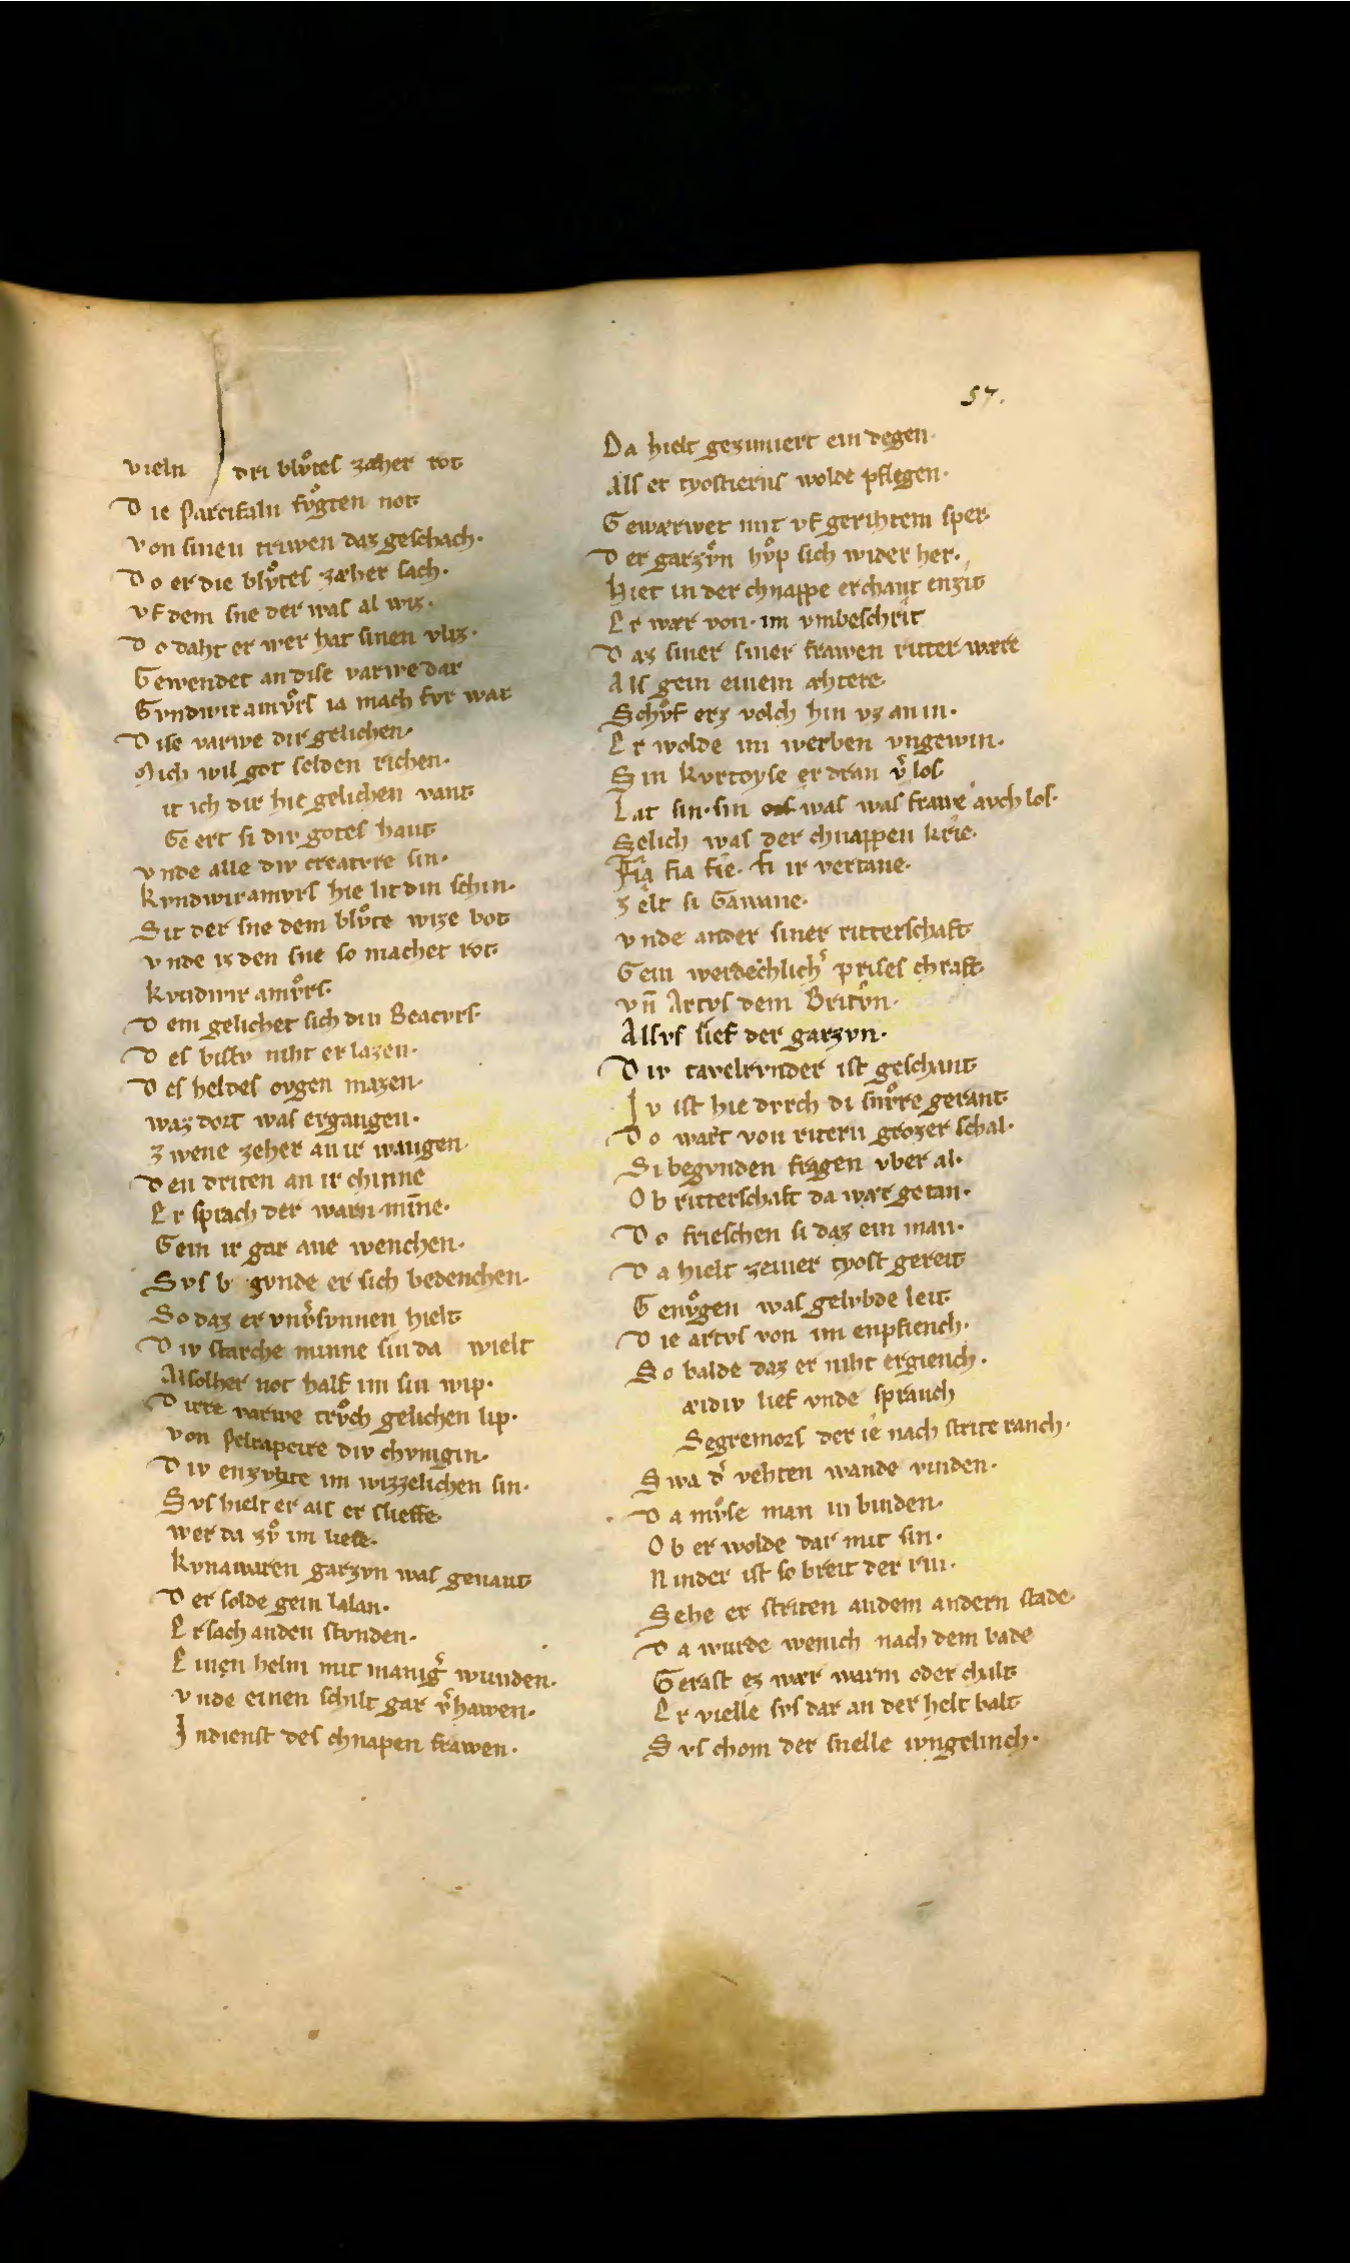 57.
vieln dri blůtes zæher rot
Die Parcifaln fůgten not
von sinen triwen daz geschach·
Do er die blůtes zæher sach·
vf dem sne der was al wiz·
Do daht er wer hat sinen vliz·
Gewendet an dise varwe dar
Gvndwiramůrs ia mach fvr war
Dise varwe dir gelichen·
Mich wil got selden richen·
it ich dir hie gelichen vant
Geert si div gotes hant
vnde alle div creatvre sin·
kvndwiramvrs hie lit din schin·
Sit der sne dem blůte wize bot
vnde iz den sne so machet rot
kvndwir amůrs·
Dem gelichet sich din Beacvrs·
Des bistv niht erlazen·
Des heldes ovgen mazen·
waz dort was ergangen·
zwene zeher an ir wangen·
Den driten an ir chinne
Er sprach der warn min̄e·
Gein ir gar ane wenchen·
Svs b gvnde er sich bedenchen·
So daz er vnv̓sunnen hielt
Div starche minne sin da wielt
Alsolher not half im sin wip·
Dirre varwe trůch gelichen lip·
von Pelrapeire div chvnigin·
Div enzvhte im wizzelichen sin·
Svs hielt er als er slieffe·
wer da zů im lieffe·
kvnawaren garzvn was genant
Der solde gein lalan·
Er sach an den stvnden·
Einen helm mit manig̓ wunden·
vnde einen schilt gar v̓hawen·
In dienst des chnapen frawen·
Da hielt gezimiert ein degen·
Als er tyostierns wolde pflegen·
Gewærwet mit vf gerihtem sper·
Der garzůn hůp sich wider her·
Hiet in der chnappe erchant enzit
Er wær von· im vmbeschrit
Daz siner siner frawen ritter wære
Als gein einem æhtere·
Schůf erz volch hin vz an in·
Er wolde im werben vngewin·
Sin kvrtoyse er dran v̓los
Lat sin· sin was was frauwe avch los·
Selich was der chnappen krie·
Fia fia fie· fi ir vertane·
zelt si Gawane·
vnde ander siner ritterschaft
Gein werdechlich̓ prises chraft
vn̄ Artvs dem Britůn·
Alsvs lief der garzvn·
Div tavelrvnder ist geschant
Iv ist hie dvrch di snůre gerant
Do wart von ritern grozer schal·
Si begvnden fragen vber al·
Ob ritterschaft da wær getan·
Do frieschen si daz ein man·
Da hielt zeiner tyost gereit
Genůgen was gelvbde leit
Die artvs von im enpfiench·
So balde daz er niht ergiench·
æidiv lief vnde spranch
Segremors der ie nach strite ranch·
Swa d̓ vehten wande vinden·
Da můse man in binden·
Ob er wolde dar mit sin·
Ninder ist so breit der rin·
Sehe er striten an dem andern stade·
Da wurde wenich nach dem bade
Gerast ez wær warm oder chalt
Er vielle svs dar an der helt balt
Svs chom der snelle ivngelinch·